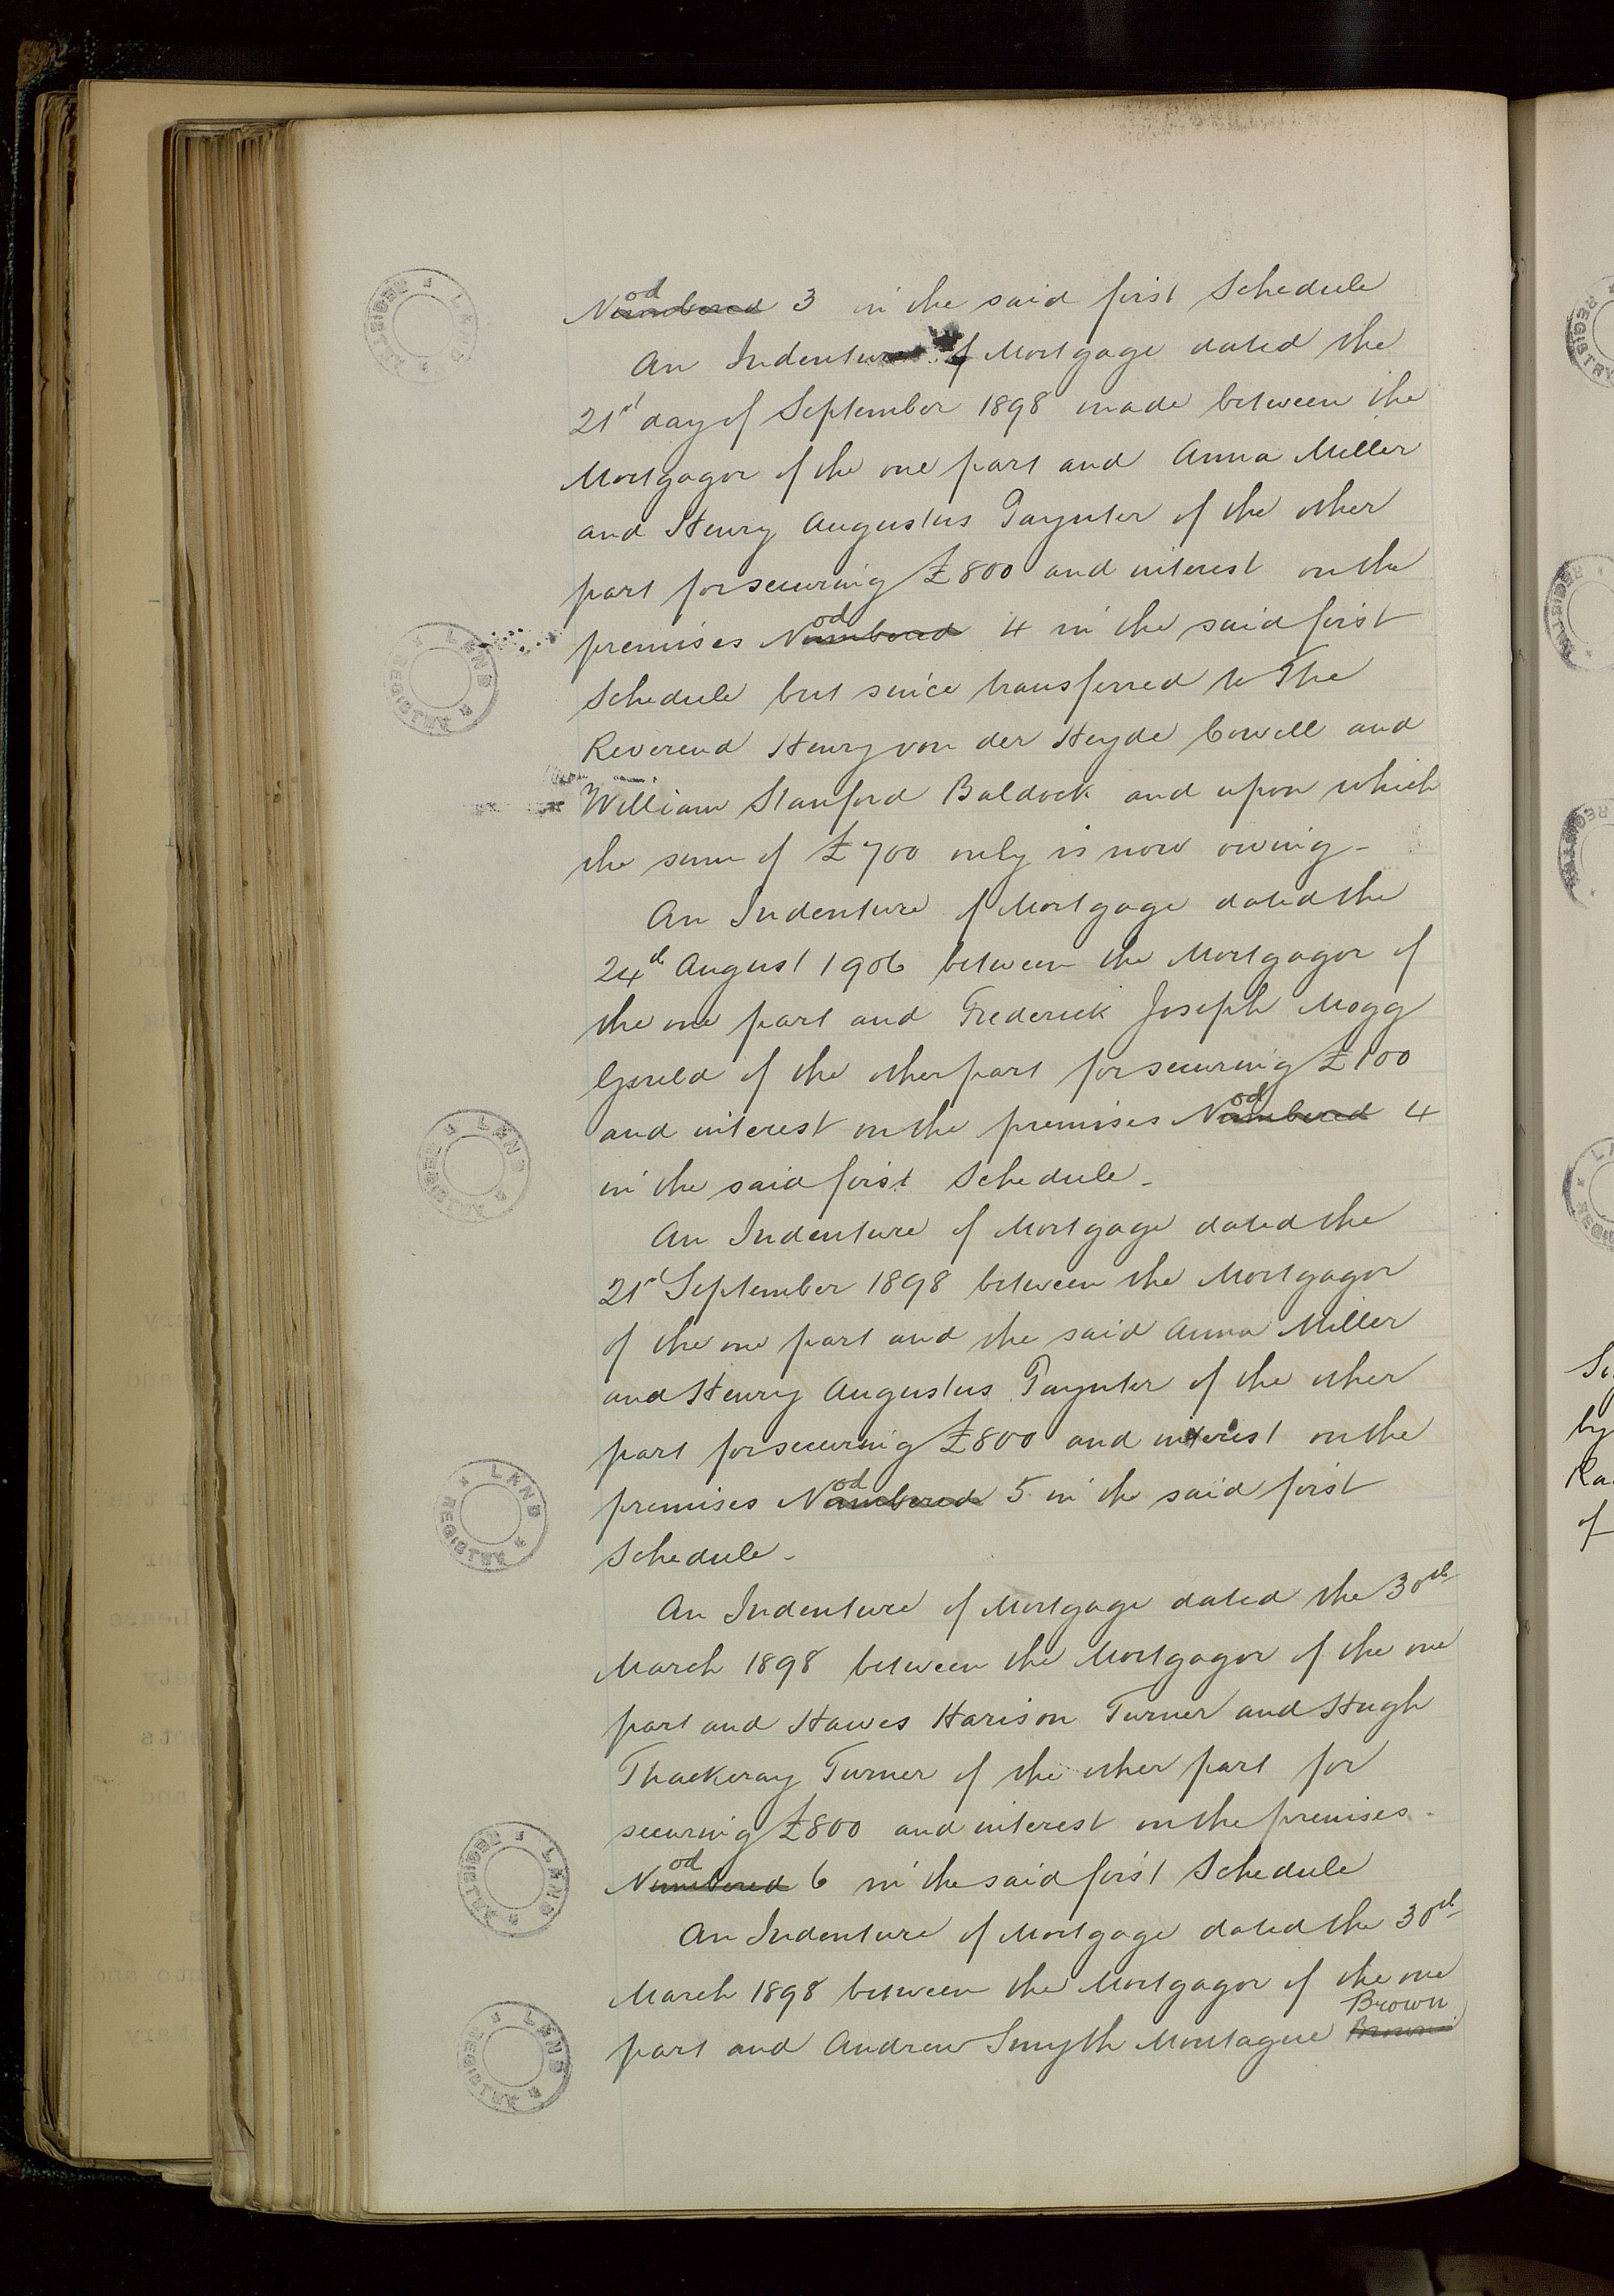 Nod 3 in the said first Schedule
An Indenture of Mortgage dated the
21st day of September 1898 made between the
Mortgagor of the one part and Anna Miller
and Henry Augustus Paynter of the other
part for securing £800 and interest on the
premises Nod 4 in the said first
Schedule but since transferred to The
Reverend Henry von der Heyde Cowell and
William Stanford Baldock and upon which
the sum of £700 only is now owing-
An Indenture of Mortgage dated the
24th August 1906 between the Mortgagor of
the one part and Frederick Joseph Mogg
Gould of the other part for securing £100
and interest on the premises Nod 4
in the said first Schedule-
An Indenture of Mortgage dated the
21st September 1898 between the Mortgagor
of the one part and the said Anna Miller
and Henry Augustus Paynter of the other
part for securing £800 and interest on the
premises Nod 5 in the said first
Schedule-
An Indenture of Mortgage dated the 30th
March 1898 between the Mortgagor of the one
part and Hawes Harison Turner and Hugh
Thackeray Turner of the other part for
securing £800 and interest on the premises-
Nod 6 in the said first Schedule
An Indenture of Mortgage dated the 30th
March 1898 between the Mortgagor of the one
part and Andrew Smyth Montague Brown
LAND REGISTRY
LAND REGISTRY
LAND REGISTRY
LAND REGISTRY
LAND REGISTRY
LAND REGISTRY
by
of